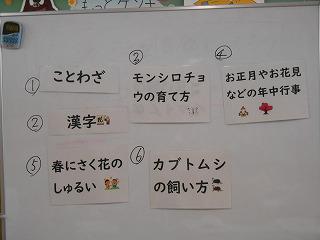 ① ことわざ
② 漢字
③ モンシロチョ
ウの育て方
④ お正月やお花見
などの年中行事
⑤ 春にさく花の
しゅるい
⑥ カブトムシ
の飼い方